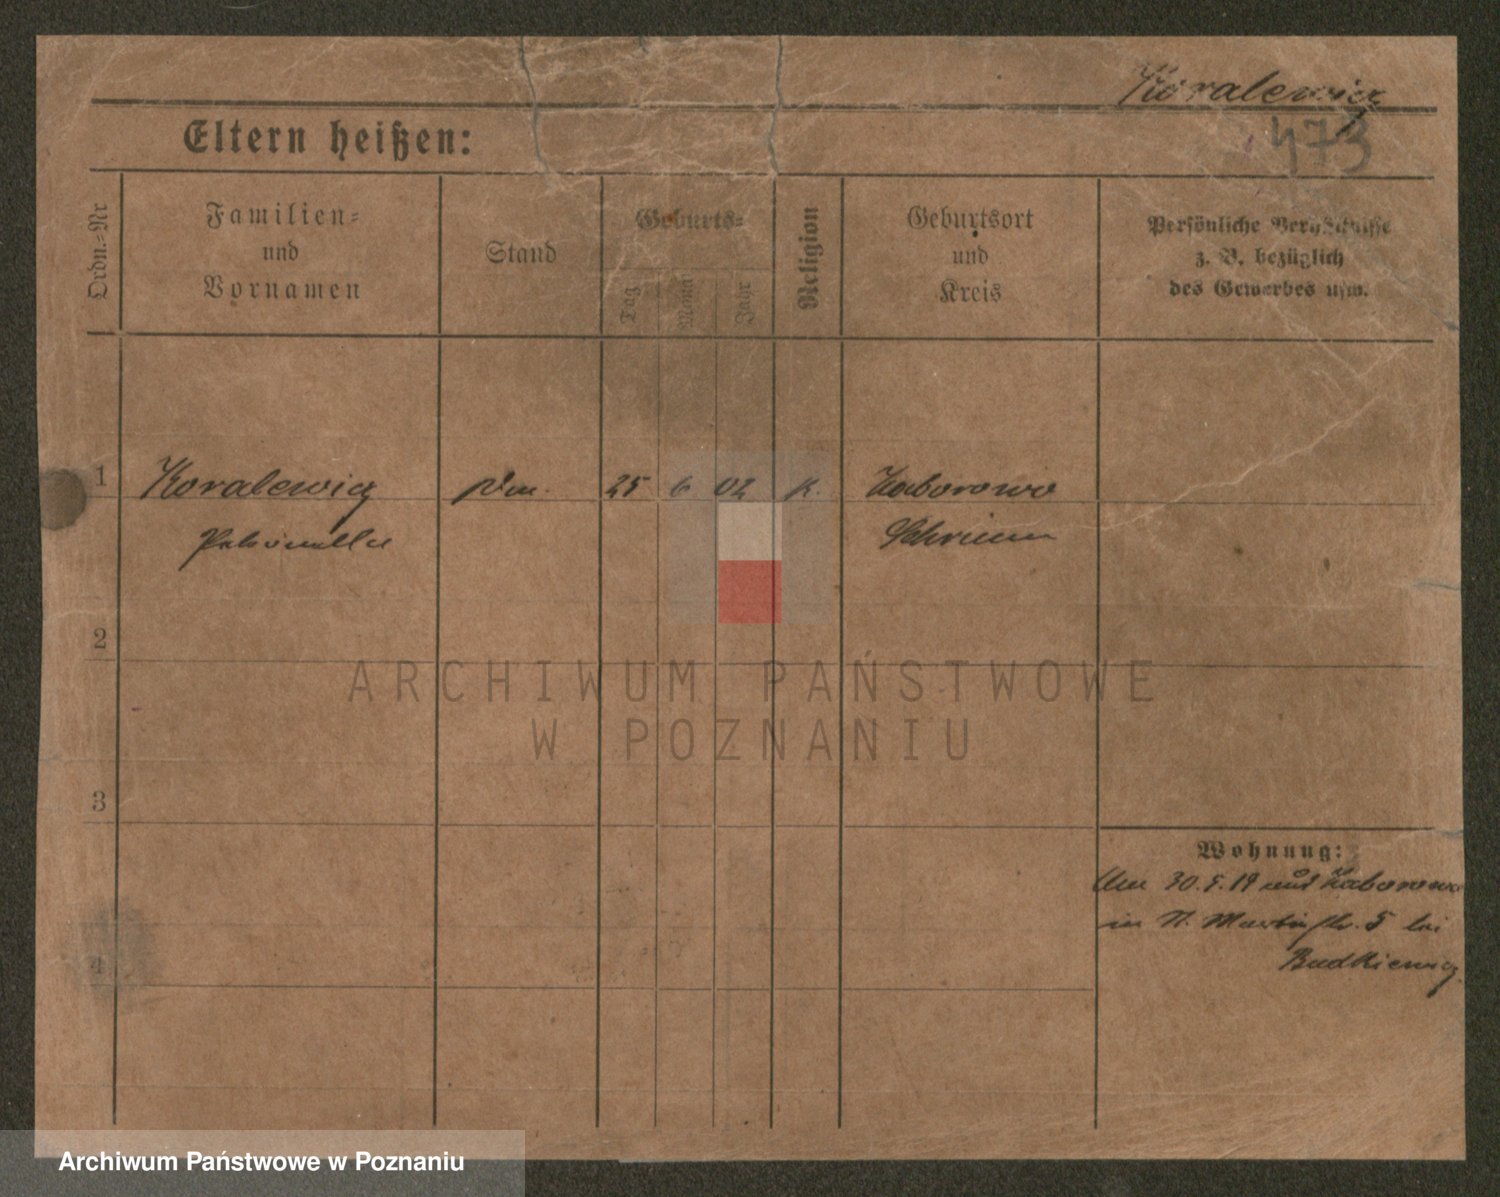 Koralewicz
473
Eltern heißen:
Ordn.-Nr
Familien-
und
Vornamen
Stand
Geburts-
Tag
Monat
Jahr
Religion
Geburtsort
und
Kreis
Persönliche Verhältnisse
z. B. bezüglich
des Gewerbes usw.
1 Koralewicz 25 6 02 K. Zaborowo
Schrimm
2
3
4
Wohnung:
30.5.19 aus Zaborowo
in St. Martinstr. 5 bei
Budkiewicz
ARCHIWUM PAŃSTWOWE
W POZNANIU
Archiwum Państwowe w Poznaniu